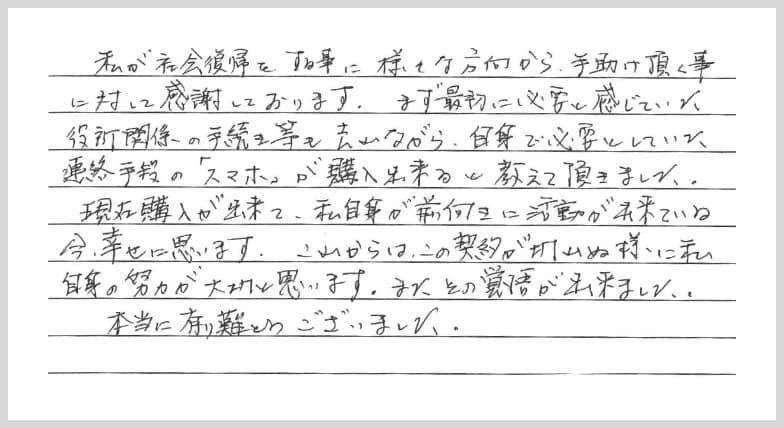 私が社会復帰をする事に様々な方向から、手助け頂く事
に対して感謝しております。まず最初に必要と感じていた、
役所関係の手続き等を去しながら、自身で必要としていた、
連絡手段の「スマホ」が購入出来ると教えて頂きました。
現在購入が出来て、私自身が前向きに活動が出来ている
今、幸せに思います。これからは、この契約が切れぬ様に私
自身の努力が大切と思います。また、その覚悟が出来ました。
本当に有り難とうございました。